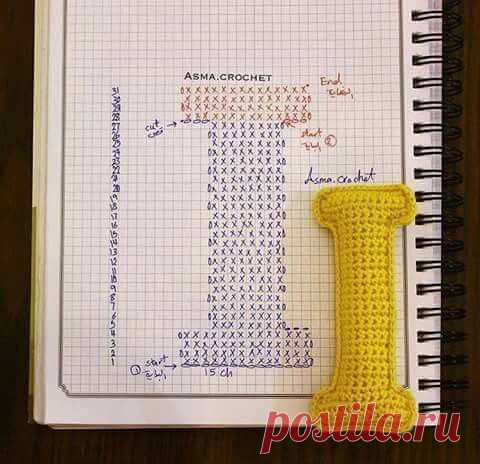 ASMA.CROCHET
End
31
30
29
28
27
cut
start
2
26
25
24
23
22
21
Asma.crochet
20
19
18
17
16
15
14
13
12
11
10
9
8
7
6
5
4
3
2
1
1 start
15 ch
postila.ru